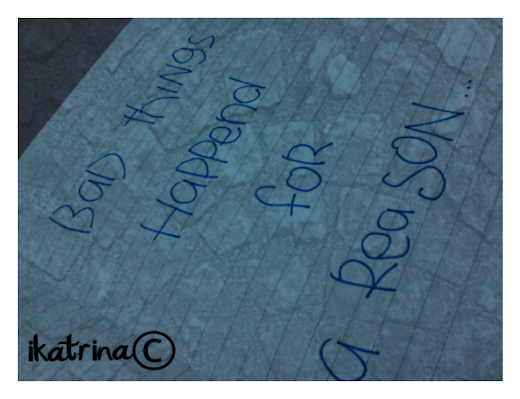 BaD things
Happend
foR
a ReaSON...
ikatrina©